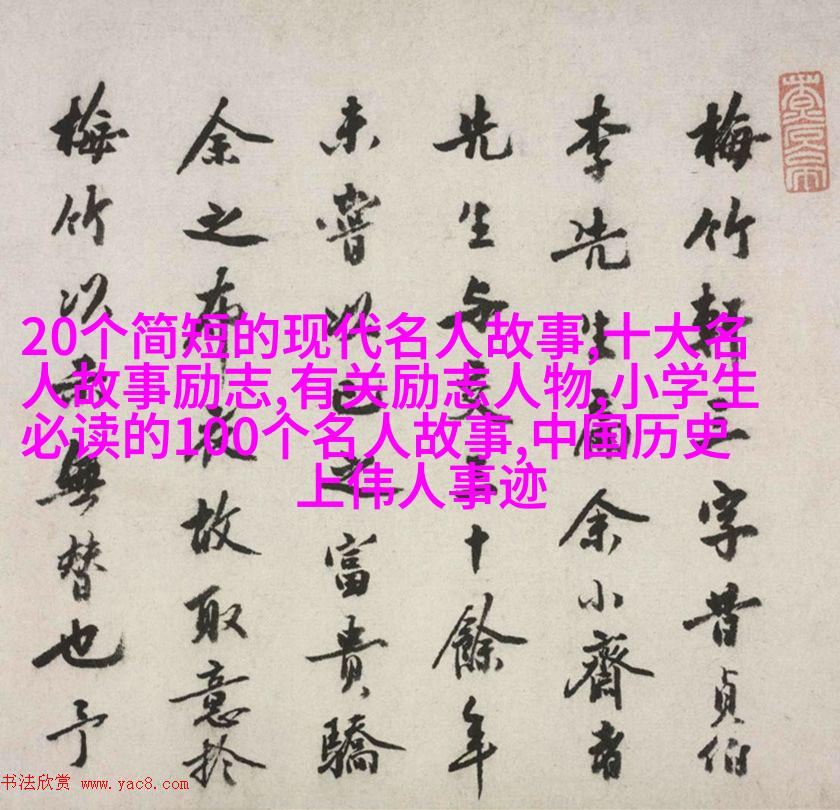 梅竹軒三字昔貞伯
李先生嘗爲余小齋書
先生与交三十餘年
未嘗以己之富貴驕
余之布衣故取意扵
梅竹以無替也予
20个简短的现代名人故事,十大名
人故事励志,有关励志人物,小学生
必读的100个名人故事,中国历史
上伟人事迹
书法欣赏 www.yac8.com